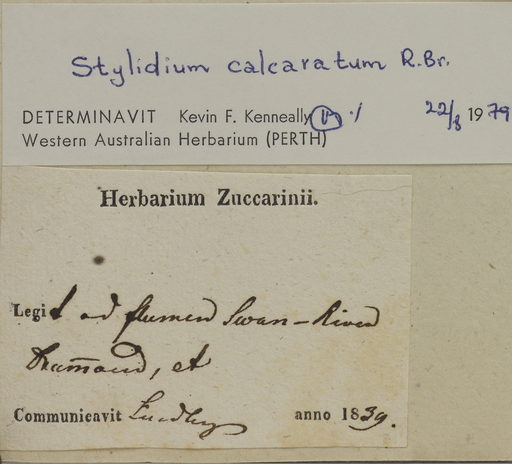 Stylidium calcaratum R.Br.
DETERMINAVIT Kevin F. Kenneally 22/8 1979
Western Australian Herbarium (PERTH)
Herbarium Zuccarinii.
Legit ad flumen Swan-River
Drum̄ond, et
Communicavit Lindley anno 1839.